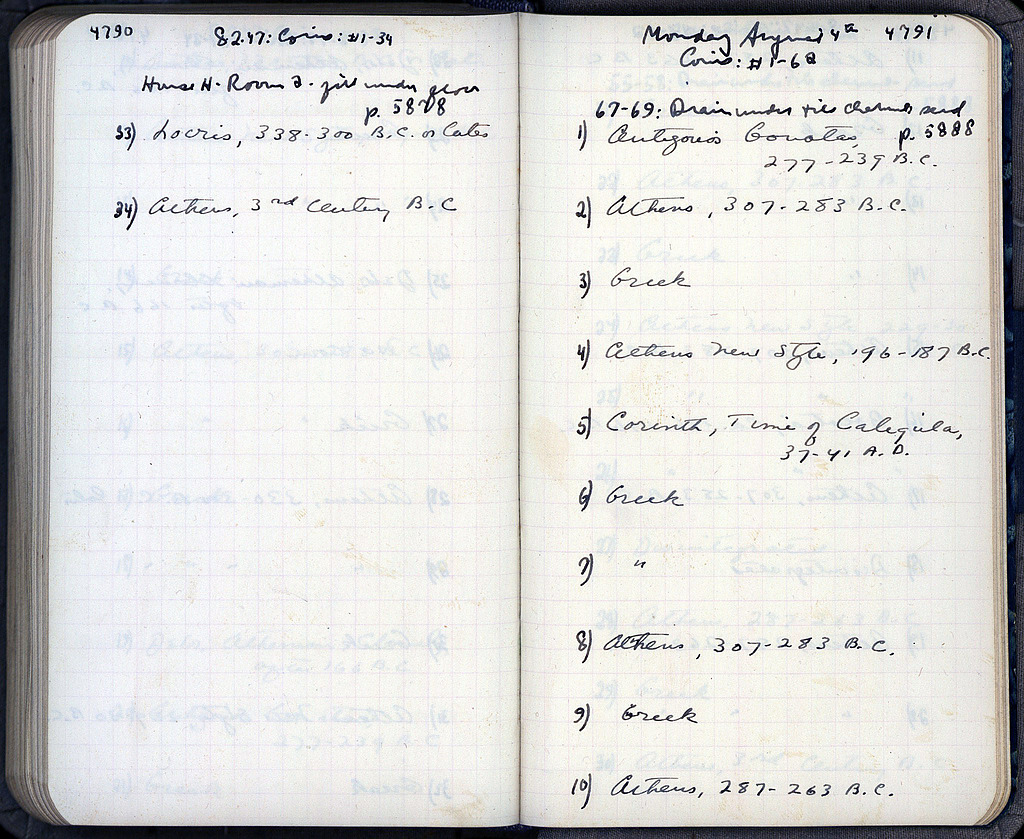 4790
8.2.47: Coins: #1-34
House H. Room 2. fill under floor
p. 5878
33) Locris, 338-300 B.C. or Later
34) Athens, 3rd Century B.C
Monday August 4th 4791
Coins: #1-69
67-69: Drain under tile channel sand
p. 5888
1) Antigonos Gonatas,
277-239 B.C.
2) Athens, 307-283 B.C.
3) Greek
4) Athens New Style, 196-187 B.C.
5) Corinth, Time of Caligula,
37-41 A.D.
6) Greek
7) "
8) Athens, 307-283 B.C.
9) Greek
10) Athens, 287-263 B.C.